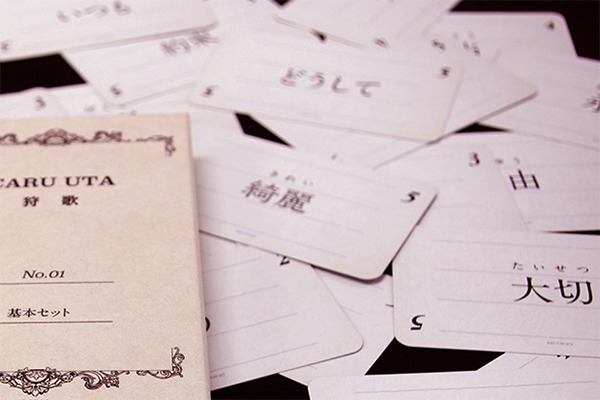 CARU UTA
狩歌
No.01
基本セット
いつも
約束
5
どうして
5
5
3
きれい
綺麗
5
3
ゅう
由
たいせつ
大切
5